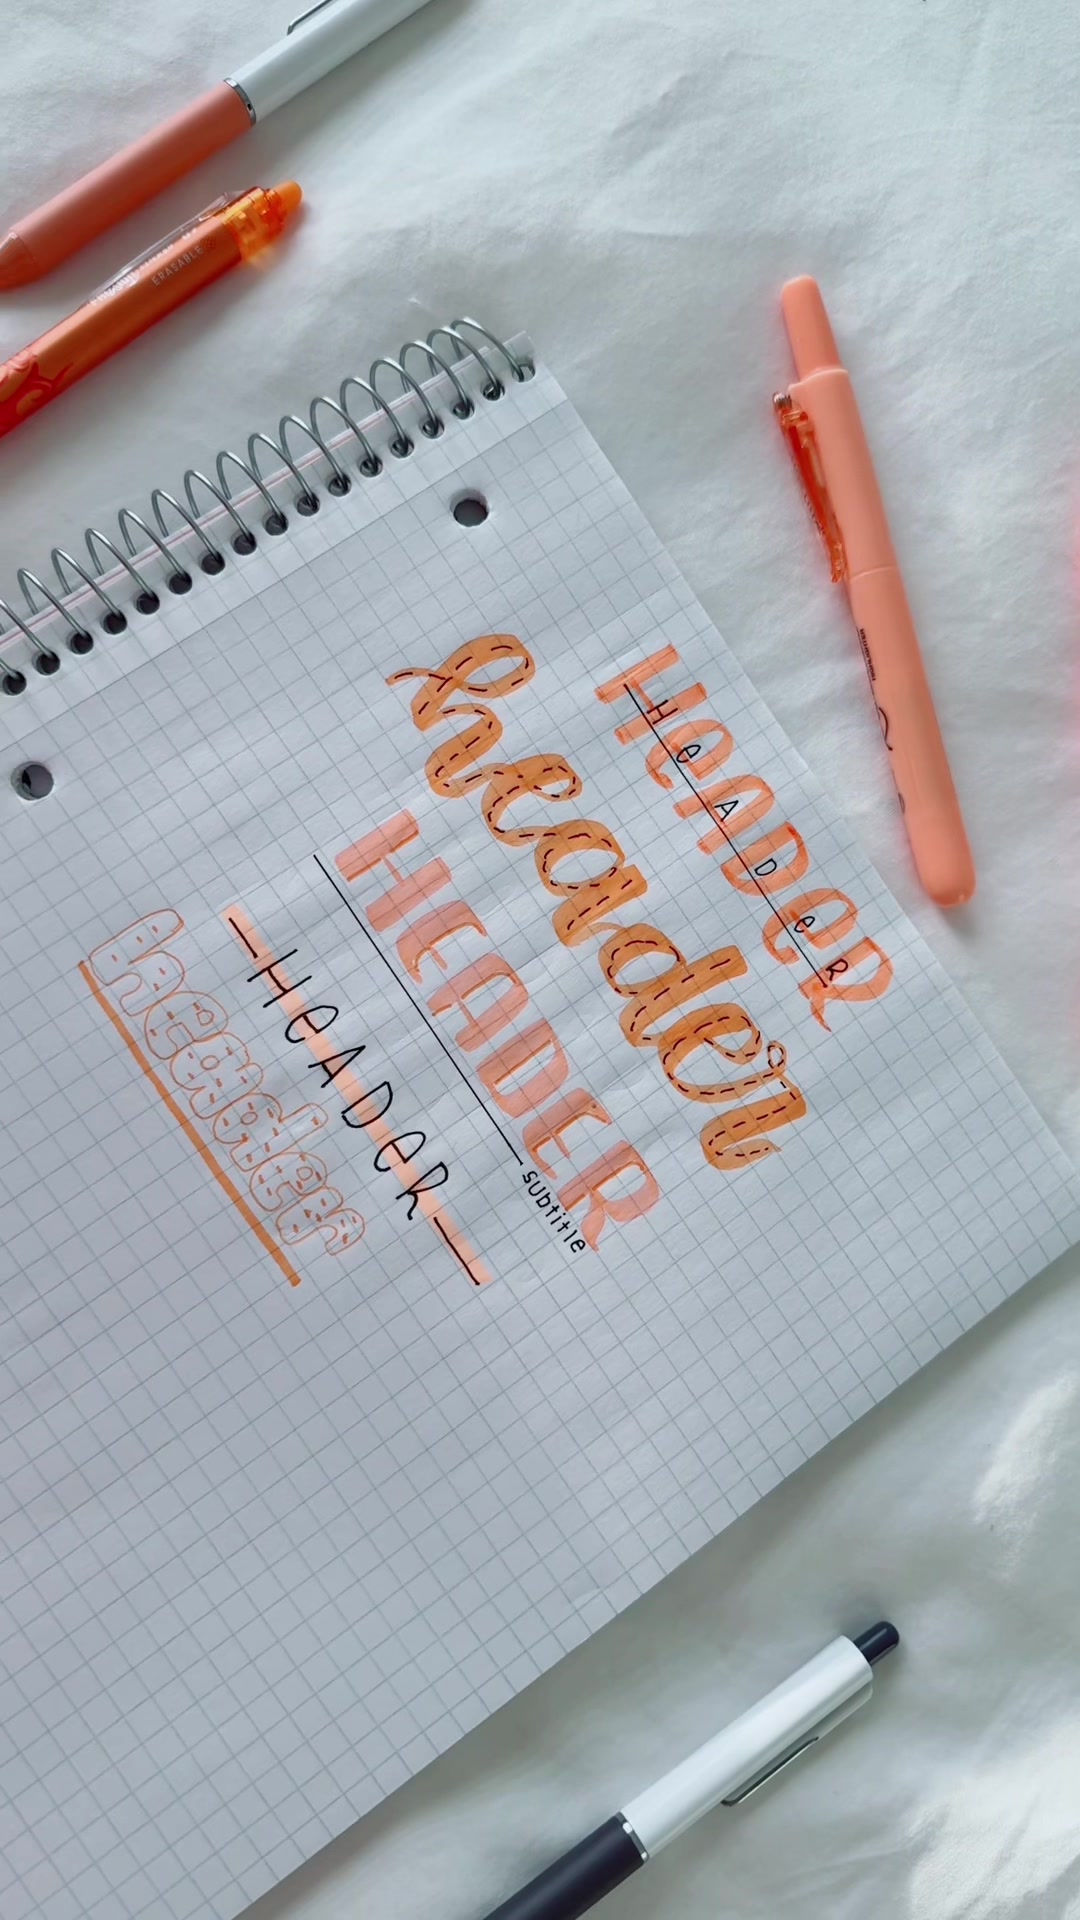 HeADeR
HeADeR
header
HEADER
subtitle
HeADeR
header
ERASABLE
HIGHLIGHTER